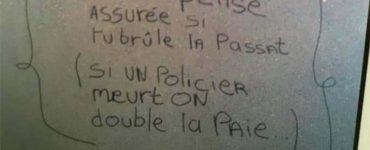 pense
ASSURÉE SI
tu brûle la Passat
(SI UN Policier
meurt ON
double la PAIE..)